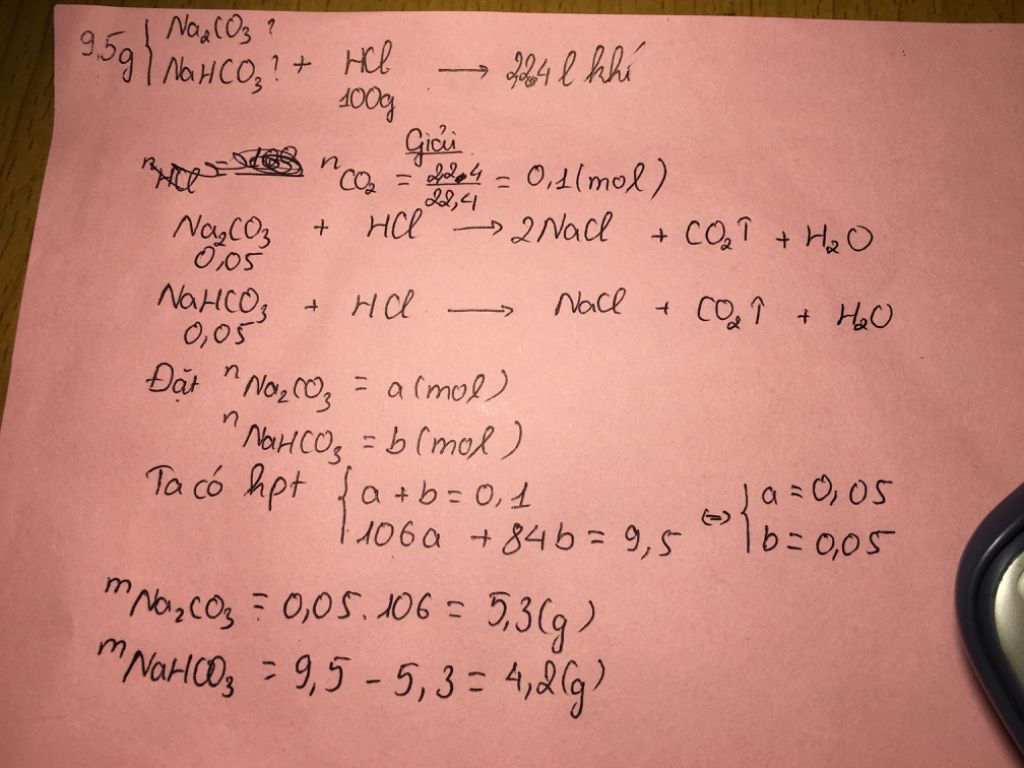 9,5g { Na₂CO₃ ?
NaHCO₃ ? + HCl → 2,24 l khí
100g
Giải
nHCl = nCO₂ = 22.4/22,4 = 0,1 (mol)
Na₂CO₃ + HCl → 2NaCl + CO₂↑ + H₂O
0,05
NaHCO₃ + HCl → NaCl + CO₂↑ + H₂O
0,05
Đặt nNa₂CO₃ = a (mol)
nNaHCO₃ = b (mol)
Ta có hpt { a + b = 0,1
106a + 84b = 9,5 ⇔ { a = 0,05
b = 0,05
mNa₂CO₃ = 0,05 . 106 = 5,3 (g)
mNaHCO₃ = 9,5 - 5,3 = 4,2 (g)